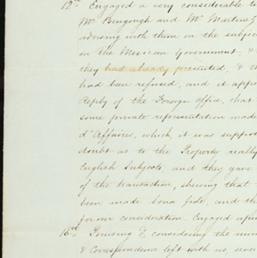 12th Engaged a very considerable t
Mr Bingough and Mr Martin
advising with them in the subjec
in the Mexican Government, &
they had already presented, &
had been refused, and it appe
Reply of the Foreign Office, that
some private representation made
d'Affaires, which it was suppos
doubt as to the Property reall
English Subjects, and they gave
of the transaction, shewing that
been made bona fide, and th
former consideration. Engaged
Perusing & considering the
& Correspondence left with us,